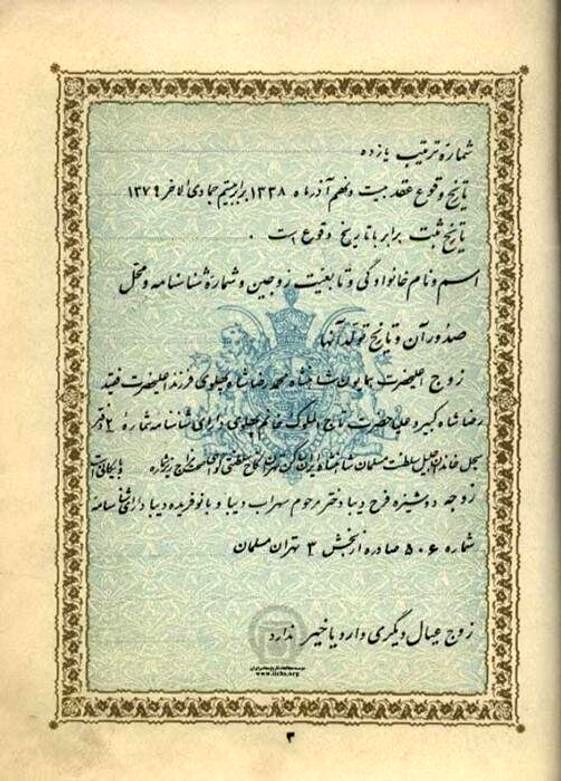 شماره ترتیب یازده
تاریخ وقوع عقد بیست و نهم آذرماه ۱۳۳۸ برابر بیستم جمادی الاخر ۱۳۷۹
تاریخ ثبت برابر با تاریخ وقوع است .
اسم و نام خانوادگی و تابعیت زوجین و شماره شناسنامه و محل
صدور آن و تاریخ تولد آنها
زوج اعلیحضرت همایون شاهنشاه محمد رضا شاه پهلوی فرزند اعلیحضرت فقید
رضا شاه کبیر و علیاحضرت تاج الملوک خانم پهلوی دارای شناسنامه شماره ۲ دفتر
سجل خاندان جلیل سلطنت مسلمان شاهنشاه ایران ساکن تهران کاخ سلطنتی
زوجه دوشیزه فرح دیبا دختر مرحوم سهراب دیبا و بانو فریده دیبا دارای شناسنامه
شماره ۵۰۶ صادره از بخش ۳ تهران مسلمان
زوج عیال دیگری دارد یا خیر ندارد
موسسه مطالعات تاریخ معاصر ایران
www.iichs.org
۳